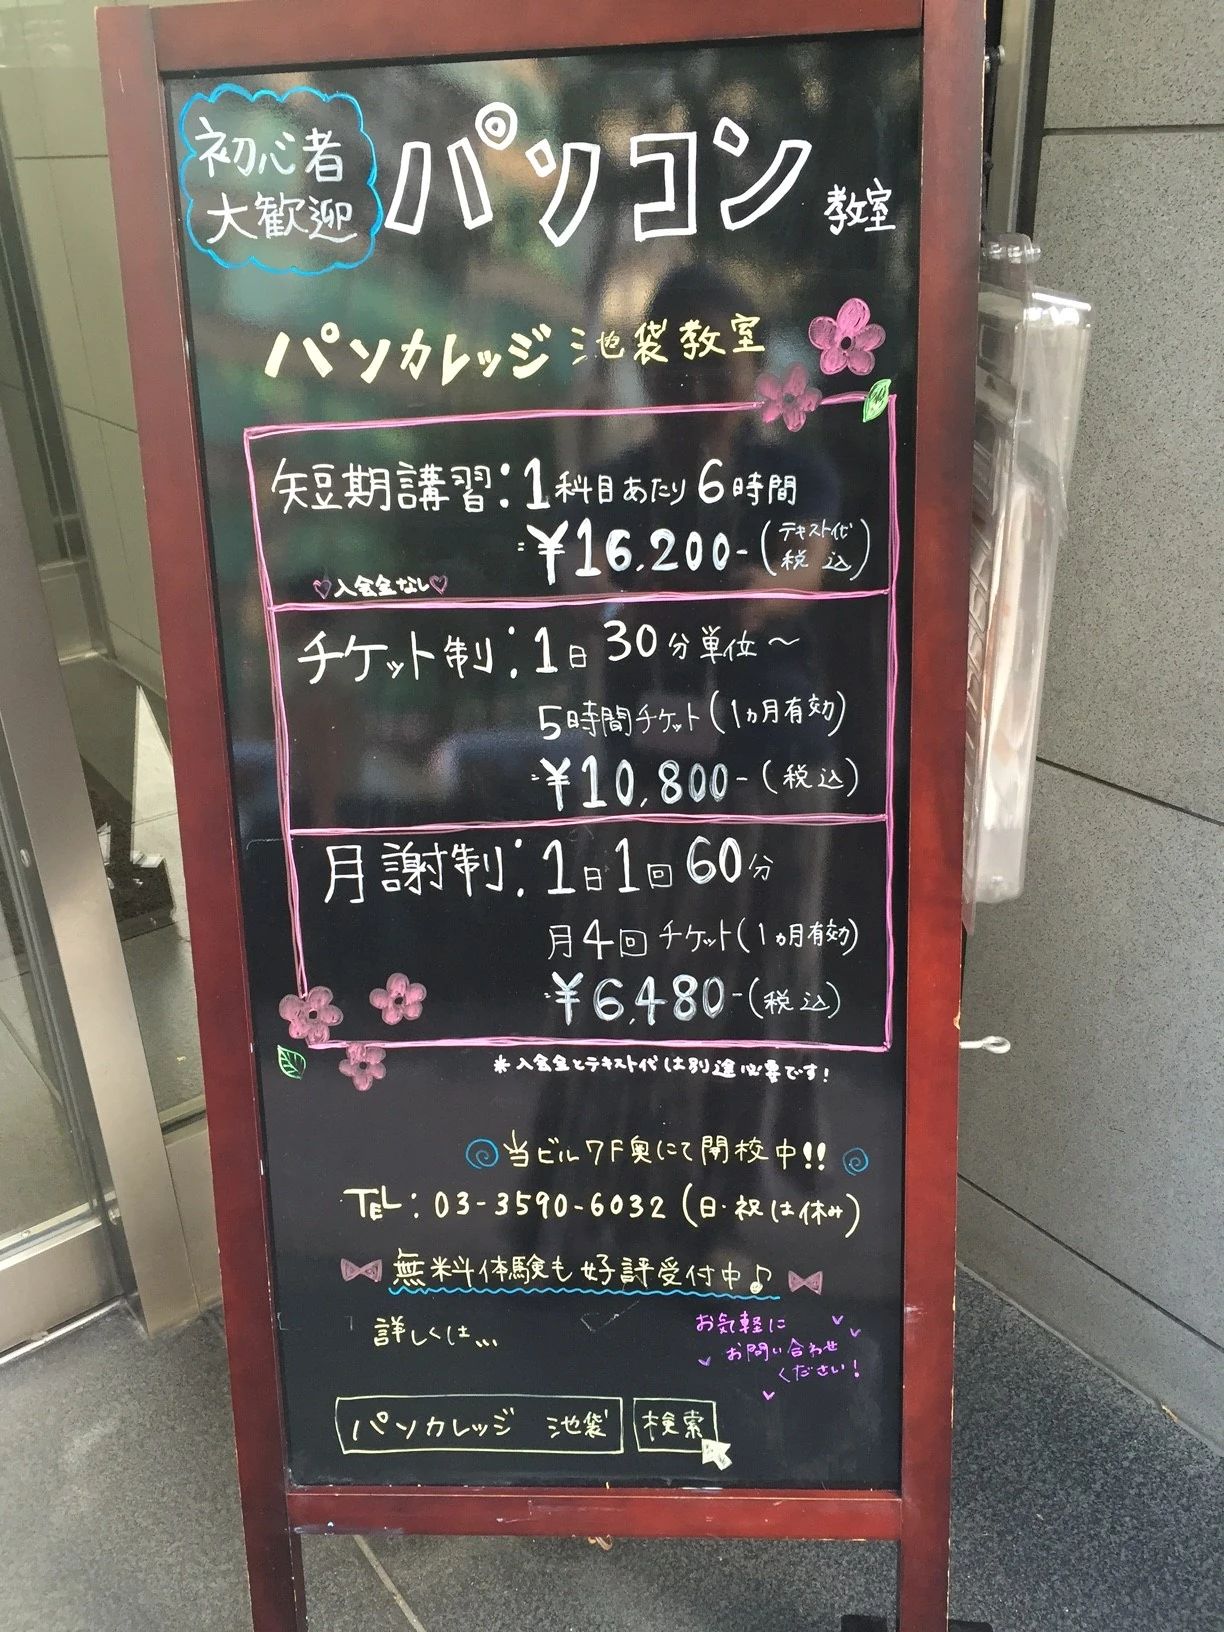 初心者
大歓迎
パソコン教室
パソカレッジ 池袋教室
短期講習:1科目あたり6時間
=¥16,200-(テキスト代 税込)
♡入会金なし♡
チケット制:1日30分単位〜
5時間チケット(1ヵ月有効)
=¥10,800-(税込)
月謝制:1日1回60分
月4回チケット(1ヵ月有効)
=¥6,480-(税込)
*入会金とテキスト代は別途必要です!
当ビル7F奥にて開校中!!
TEL:03-3590-6032(日・祝は休み)
無料体験も好評受付中♪
詳しくは...
お気軽に
お問い合わせ
ください!
パソカレッジ 池袋 検索